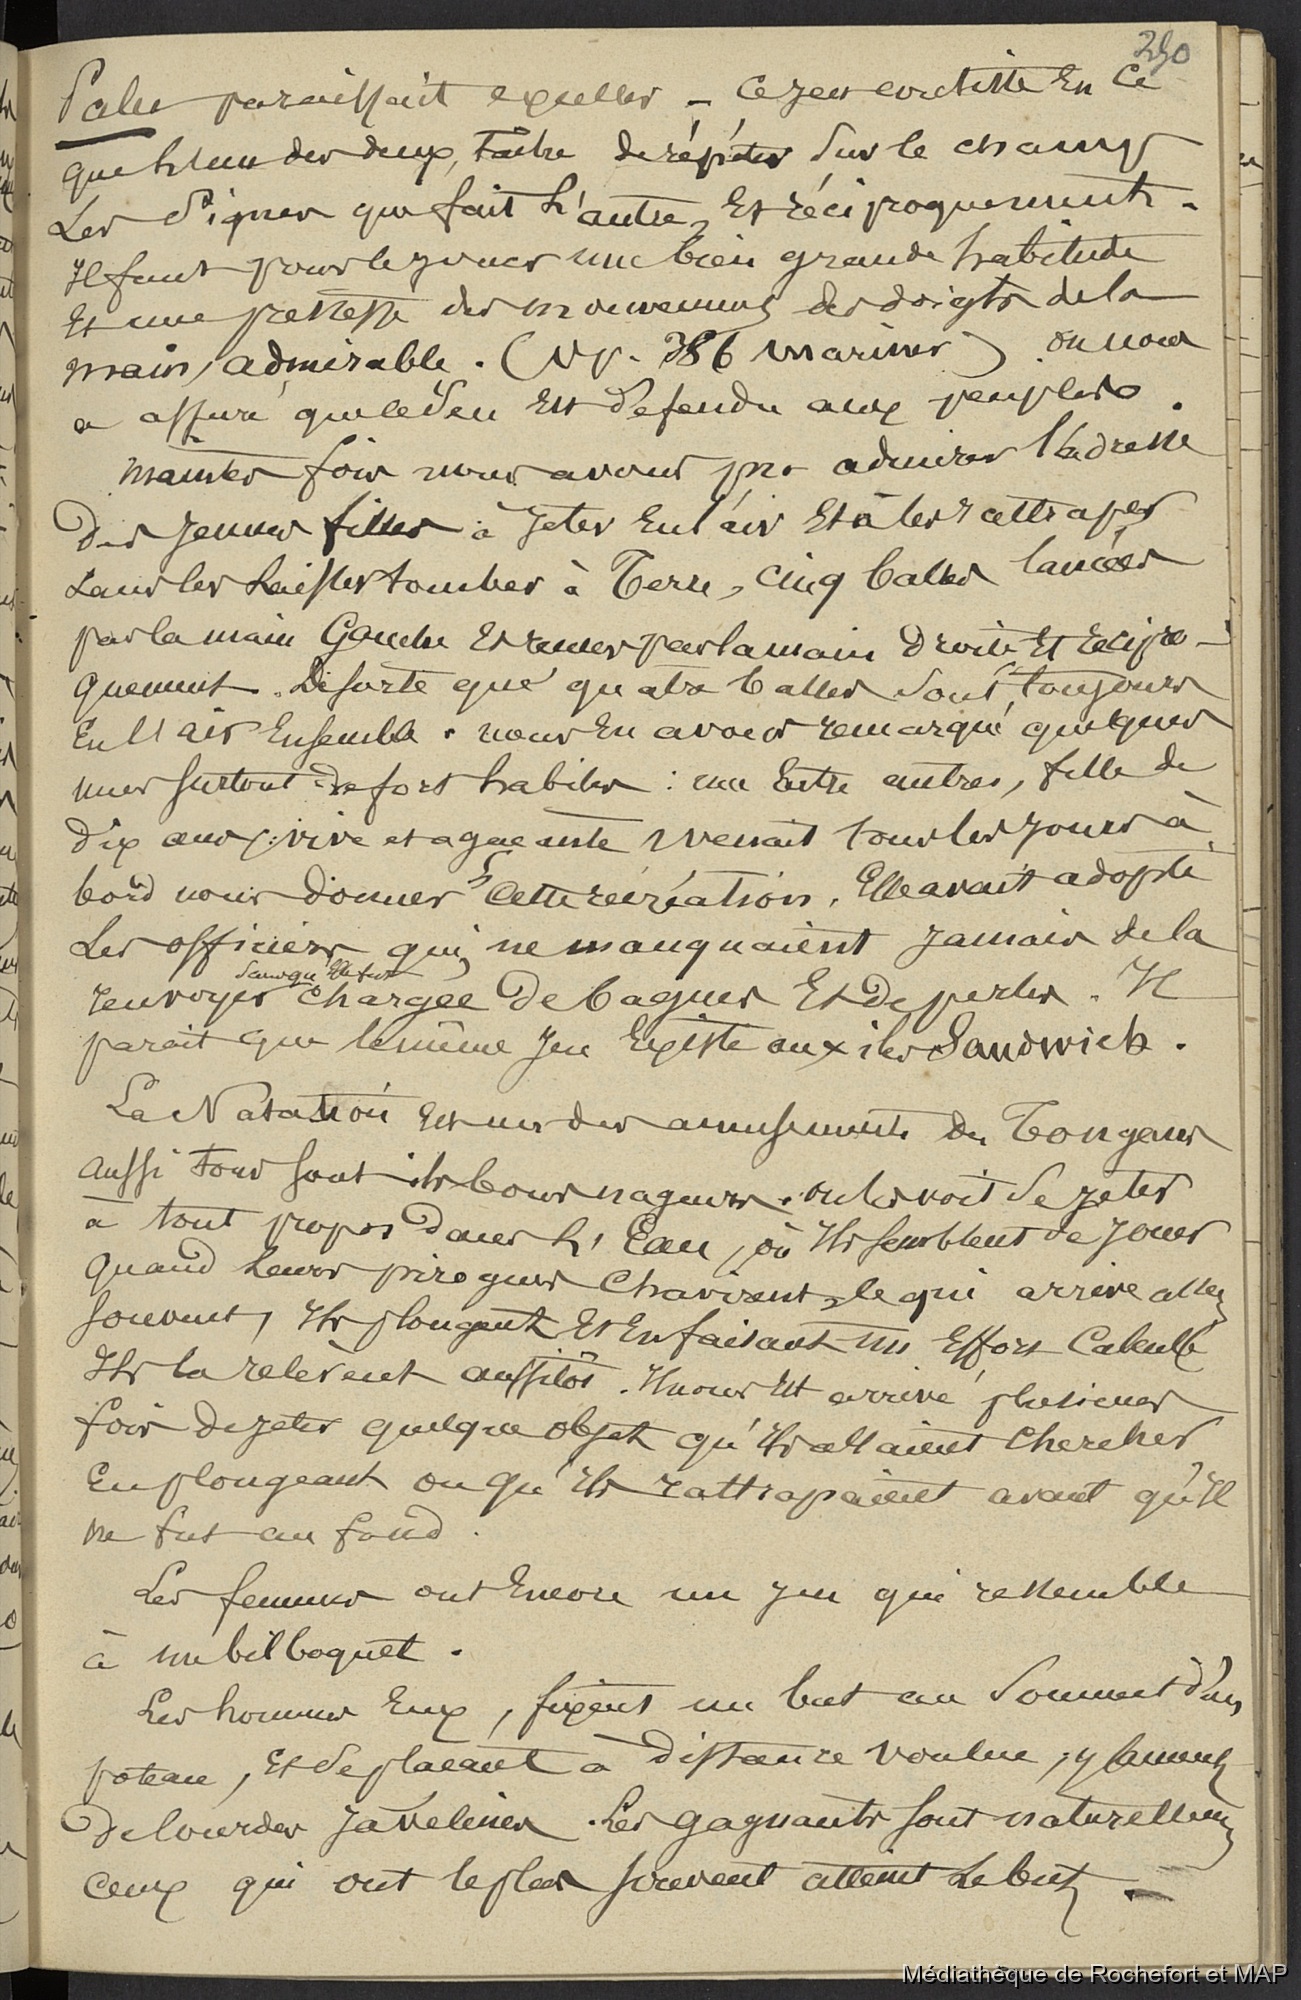 290
Palu paraissait exceller – Ce jeu consiste En Ce
que l'un des deux, tâche de répéter Sur le champ
Les Signes que fait L'autre, Et réciproquement.
Il faut pour le jouer une bien grande habitude
Et une prestesse des mouvements des doigts de la
main, admirable. (Vp. 786 mariner) on nous
a assuré que le Jeu Est Défendu aux peuples.
Maintes fois nous avons pu admirer l'adresse
Des jeunes filles à jeter En l'air Et à les rattraper
Sans les Laisser tomber à Terre, Cinq balles lancées
par la main Gauche Et reçues par la main Droite Et récipro-
quement. De sorte que quatre balles Sont toujours
En l'air Ensemble. nous En avons remarqué quelques
unes surtout de fort habiles : une Entre autres, fille de
Dix ans, vive et agaçante venait tous les jours à
bord nous Donner Cette récréation. Elle avait adopté
Les officiers qui ne manquaient jamais de la
renvoyer Chargée De bagues Et De perles. Il
parait que le même jeu Existe aux iles Sandwich.
La Natation Est un des amusements des Tongans
aussi Tous sont ils bons nageurs. on les voit Se jeter
à tout propos Dans L'Eau, où Ils semblent se jouer
Quand Leurs pirogues Chavirent, ce qui arrive assez
souvent, Ils plongent Et En faisant un Effort Calculé
Ils la relèvent aussitôt. Il nous Est arrivé plusieurs
fois De jeter quelque objet qu'Ils allaient Chercher
En plongeant ou qu'Ils rattrapaient avant qu'Il
ne fut au fond.
Les femmes ont Encore un jeu qui ressemble
à un bilboquet.
Les hommes Eux, fixent un but au Sommet d'un
poteau, Et Se plaçant à Distance Voulue, y lancent
De lourdes javelines. Les gagnants sont naturellement
Ceux qui ont le plus souvent atteint Le but –
Médiathèque de Rochefort et MAP